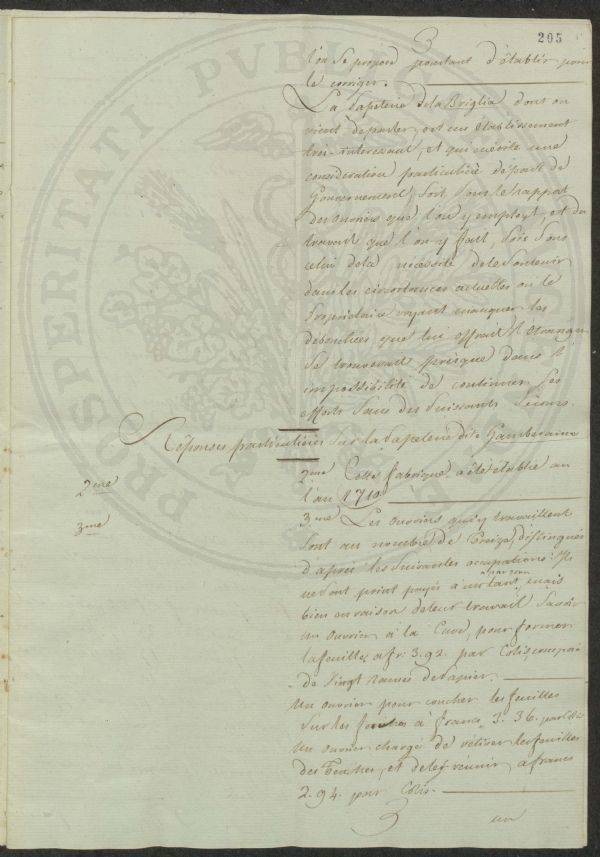 205
3
l'on se propose pourtant d'établir pour
le corriger.
La Papeterie de la Briglia dont on
vient de parler, est un établissement
très-interessant, et qui mérite une
consideration particulière de part de
Gouvernement, soit sous le rapport
des ouvriers que l'on y employe, et du
travail que l'on y fait, soit sous
celui de la nécessité de le soutenir
dans les circonstances actuelles ou le
Propriétaire voyant manquer les
débouchés que lui offrait l'étranger
se trouverait presque dans l'
impossibilité de continuer ses
efforts sans des puissants secours.
Réponses particulières sur la Papeterie dite Gamberame
2me
2me Cette fabrique a été établie en
l'an 1710
3me
3me Les ouvriers qui y travaillent
sont au nombre de Treize, distingués
d'après les suivantes occupations. Ils
ne sont point payés à un tant par jour, mais
bien en raison de leur travail Savoir
Un ouvrier à la Cuve, pour former
la feuille, a fr. 3.92. par Colis composé
de Vingt rames de papier.
Un ouvrier pour coucher les feuilles
sur les feutres à francs 3.36. par Colis
Un ouvrier chargé de rétirer les feuilles
des feutres, et de les réunir, a francs
2.94. par Colis.
un
PROSPERITATI PUBLICAE